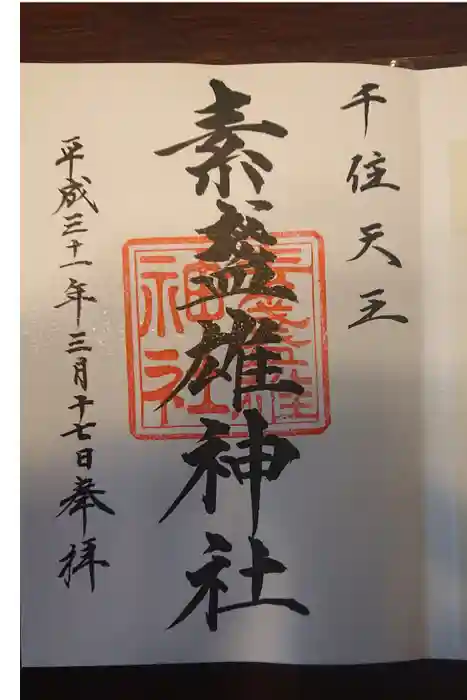 千住天王
素盞雄神社
素盞雄
神社
平成三十一年三月十七日奉拝